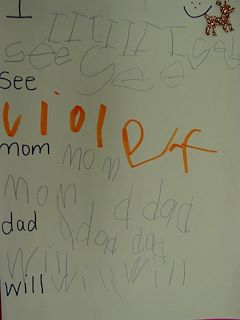 I I I I I I I I
see see see
see
violet
mom mom
mom
d dad
dad dad dad
will will will
will